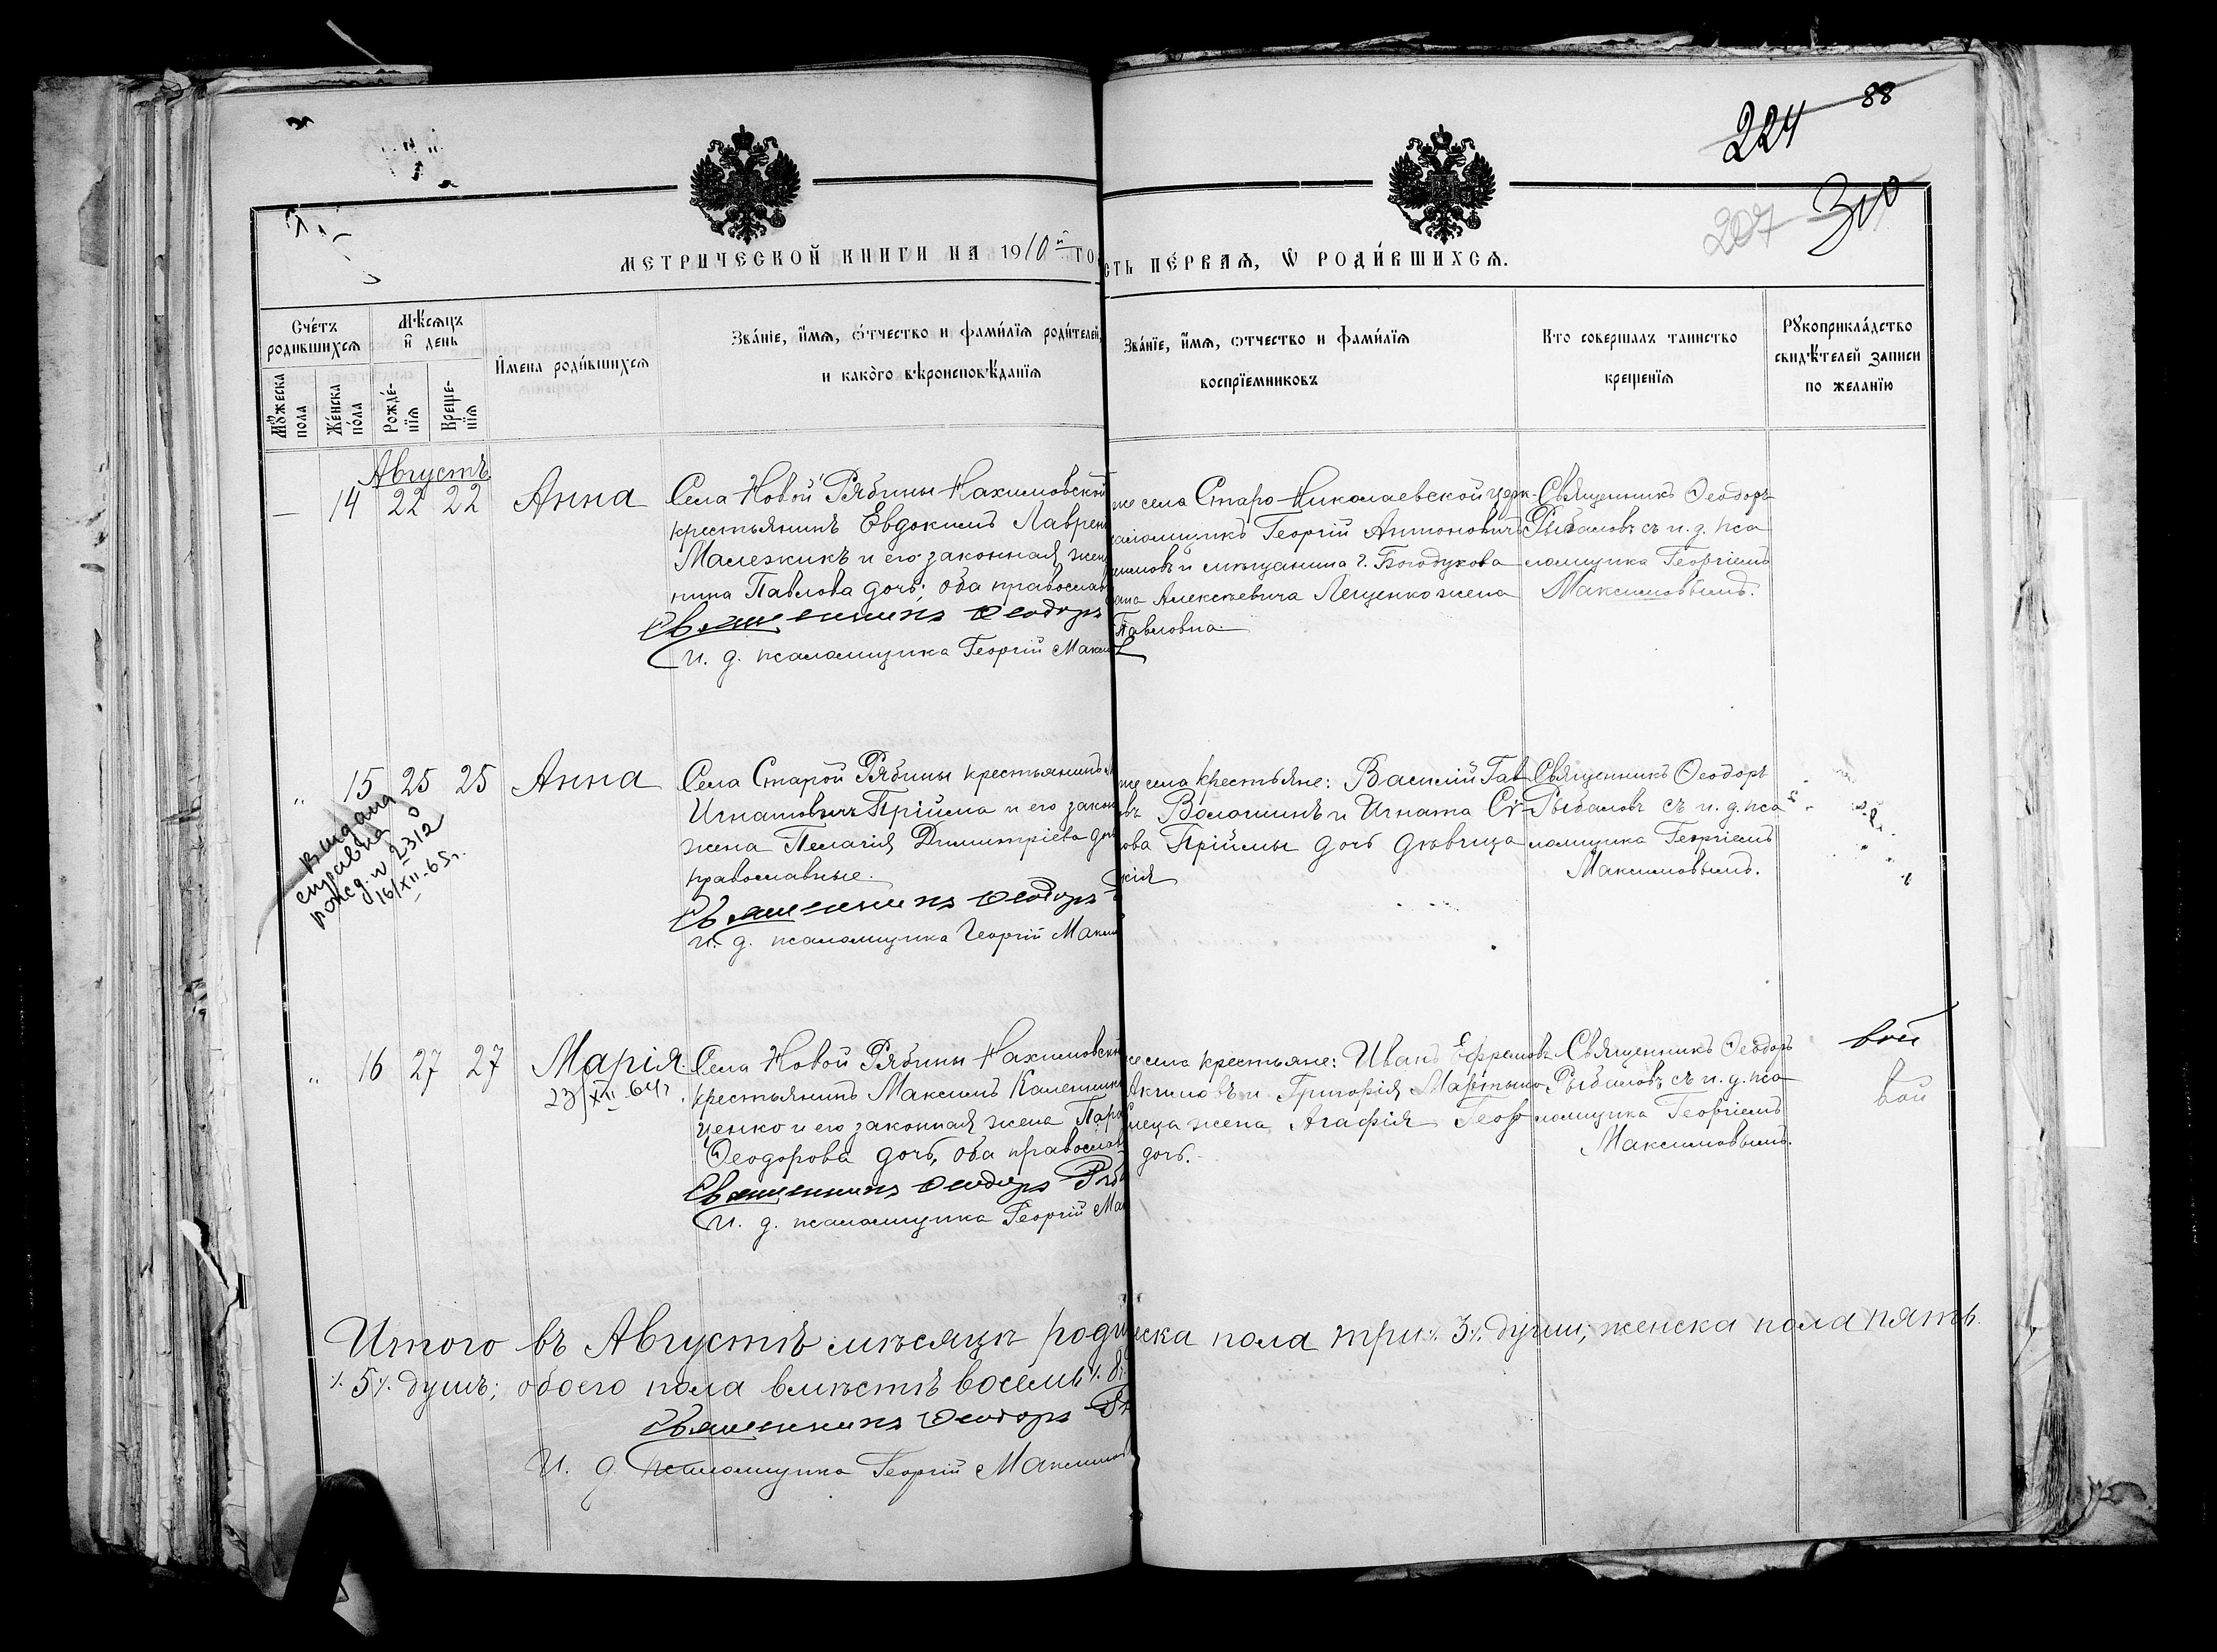 224 88
207 310
МЕТРИЧЕСКОЙ КНИГИ НА 1910й ГО
СТЬ ПЕ́РВАѦ, Ѡ҆ РОДИ́ВШИХСѦ.
Сче́тъ родившихсѧ
Мѣ́сѧцъ и҆ день
Мꙋ́жеска пола
Же́нска по́ла
Рожде́нїѧ
Креще́нїѧ
И҆мена роди́вшихсѧ
Зва́нїе, и҆́мѧ, ѻ҆́тчество и фами́лїѧ роди́телей,
и како́го вѣроисповѣ́данїѧ
Зва́нїе, и҆́мѧ, ѻтчество и фами́лїѧ
воспрїемниковъ
Кто совершалъ таинство
крещенїѧ
Рꙋкоприкла́дство
свидѣ́телей записи
по желанїю
Августъ
— 14 22 22 Анна
Села Новой Рябины Нахимовской
крестьянинъ Евдокимъ Лаврен
Малежикъ и его законная жен
нина Павлова дочь; оба православ
Священникъ Ѳеодоръ
И. д. псаломщика Георгій Макси
же села Старо-Николаевской церк
саломщикъ Георгій Антоновичъ
симовъ и мѣщанина г. Богодухова
Алексѣевича Лещенко жена
Павловна.
Священникъ Ѳеодоръ
Рыбаловъ съ и. д. пса
ломщика Георгіемъ
Максимовымъ.
" 15 25 25 Анна
Выдана
справка о
рожд. N 2312
16/XII-65г.
Села Старой Рябины крестьянинъ
Игнатовичъ Прійма и его закон
жена Пелагія Димитріева доч
православные.
Священникъ Ѳеодоръ
И. д. псаломщика Георгій Макси
же села крестьяне: Василій Гав
овъ Волошинъ и Игната Ст
ова Приймы дочь дѣвица
кія
Священникъ Ѳеодоръ
Рыбаловъ съ и. д. пса
ломщика Георгіемъ
Максимовымъ.
" 16 27 27 Марія.
23/XII-64г.
Села Новой Рябины Нахимовской
крестьянинъ Максимъ Каленик
ценко и его законная жена Пара
Ѳеодорова дочь, оба православ
Священникъ Ѳеодоръ Рыб
И. д. псаломщика Георгій Мак
же села крестьяне: Иванъ Ефремовъ
Акимовъ и Григорія Мартыно
жена Агафія Геор
дочь.
Священникъ Ѳеодоръ
Рыбаловъ съ и. д. пса
ломщика Георгіемъ
Максимовымъ.
вой
вой
Итого въ Августѣ мѣсяцѣ роди
еска пола три ./. 3 ./. души; женска пола пять
./. 5 ./. душъ; обоего пола вмѣстѣ восемь ./. 8
Священникъ Ѳеодоръ Ры
И. д. псаломщика Георгій Максимов